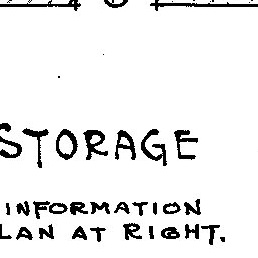 STORAGE
INFORMATION
LAN AT RIGHT.